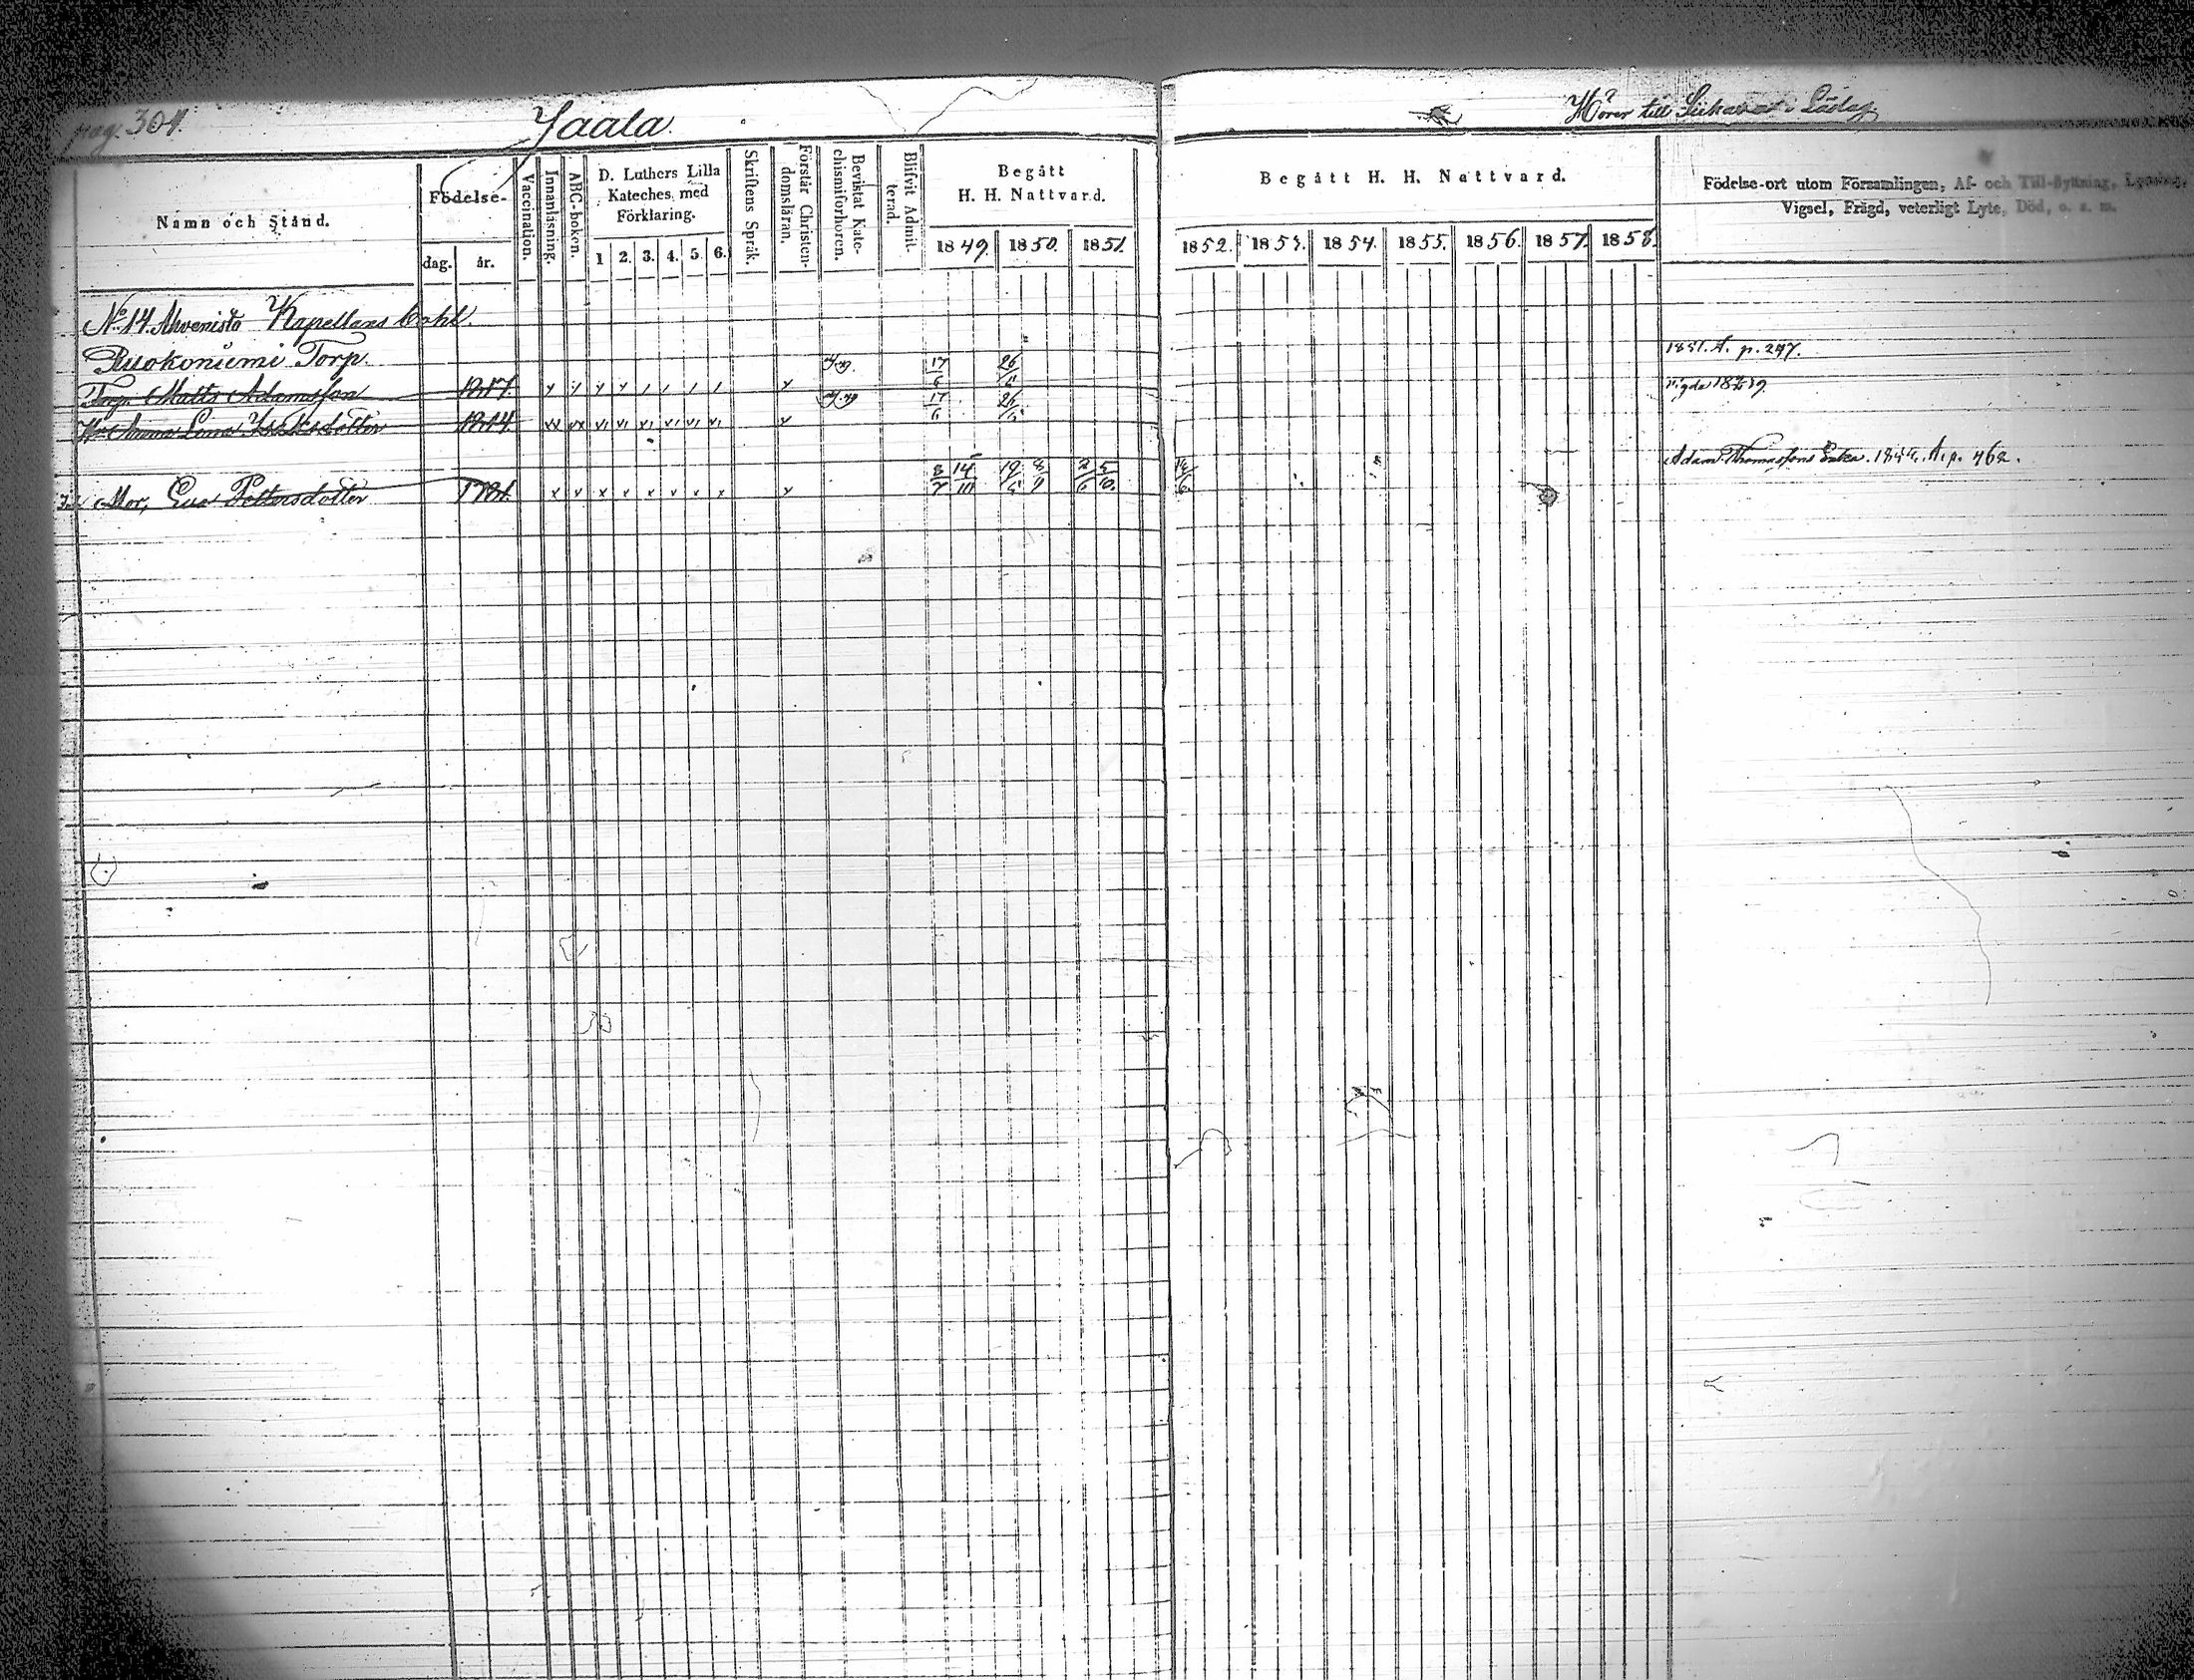 pag. 301.
Jaala.
Hörer till
Namn och Stånd.
Födelse-
dag.
år.
Vaccination.
Innanläsning.
ABC-boken.
D. Luthers Lilla
Kateches, med
Förklaring.
1 2. 3. 4. 5. 6.
Skriftens Språk.
Förstår Christen-
domsläran.
Bevistat Kate-
chismiförhören.
Blifvit Admit-
terad.
Begått
H. H. Nattvard.
1849. 1850. 1851.
Begått H. H. Nattvard.
1852. 1853. 1854. 1855. 1856. 1857. 1858.
Födelse-ort utom Församlingen, Af- och Till-flyttning, Lysning,
Vigsel, Frägd, veterligt Lyte, Död, o. s. m.
No 14. Ahvenisto Kapellans
Ruokoniemi Torp.
1851. A. p. 247.
Torp. Matts Adamsson 1817. 17/6 26/5
H. Anna Lena 1814. 17/6 26/5
Adam Thomassons Enka. 1844. A. p. 462.
Mor, Eva Pettersdotter 1781. x x x x x x x x x